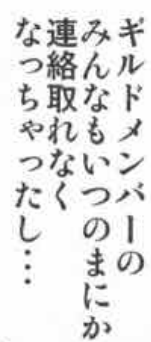 ギルドメンバーの
みんなもいつのまにか
連絡取れなく
なっちゃったし…